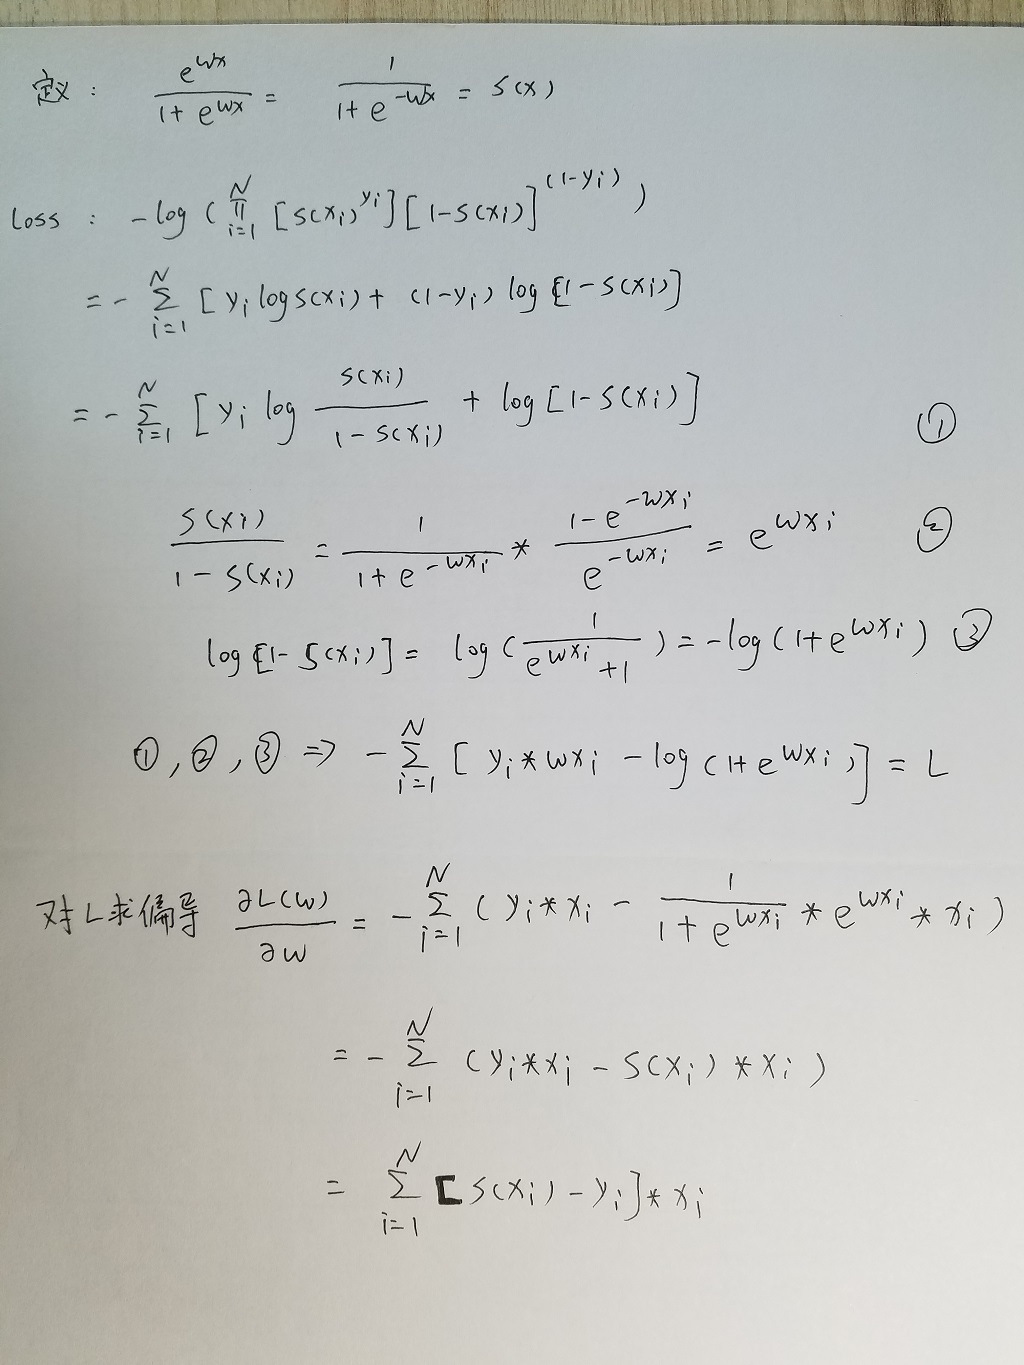 定义: e^{wx}/(1+e^{wx}) = 1/(1+e^{-wx}) = S(x)
Loss: -log(∏_{i=1}^{N} [S(x_i)^{y_i}][1-S(x_i)]^{(1-y_i)})
= -∑_{i=1}^{N} [y_i log S(x_i) + (1-y_i) log [1-S(x_i)]
= -∑_{i=1}^{N} [y_i log S(x_i)/(1-S(x_i)) + log[1-S(x_i)] ①
S(x_i)/(1-S(x_i)) = 1/(1+e^{-wx_i}) * (1-e^{-wx_i})/e^{-wx_i} = e^{wx_i} ②
log[1-S(x_i)] = log(1/(e^{wx_i}+1)) = -log(1+e^{wx_i}) ③
①,②,③ => -∑_{i=1}^{N} [y_i*wx_i - log(1+e^{wx_i})] = L
对L求偏导 ∂L(w)/∂w = -∑_{i=1}^{N} (y_i*x_i - 1/(1+e^{wx_i}) * e^{wx_i} * x_i)
= -∑_{i=1}^{N} (y_i*x_i - S(x_i)*x_i)
= ∑_{i=1}^{N} [S(x_i)-y_i]*x_i